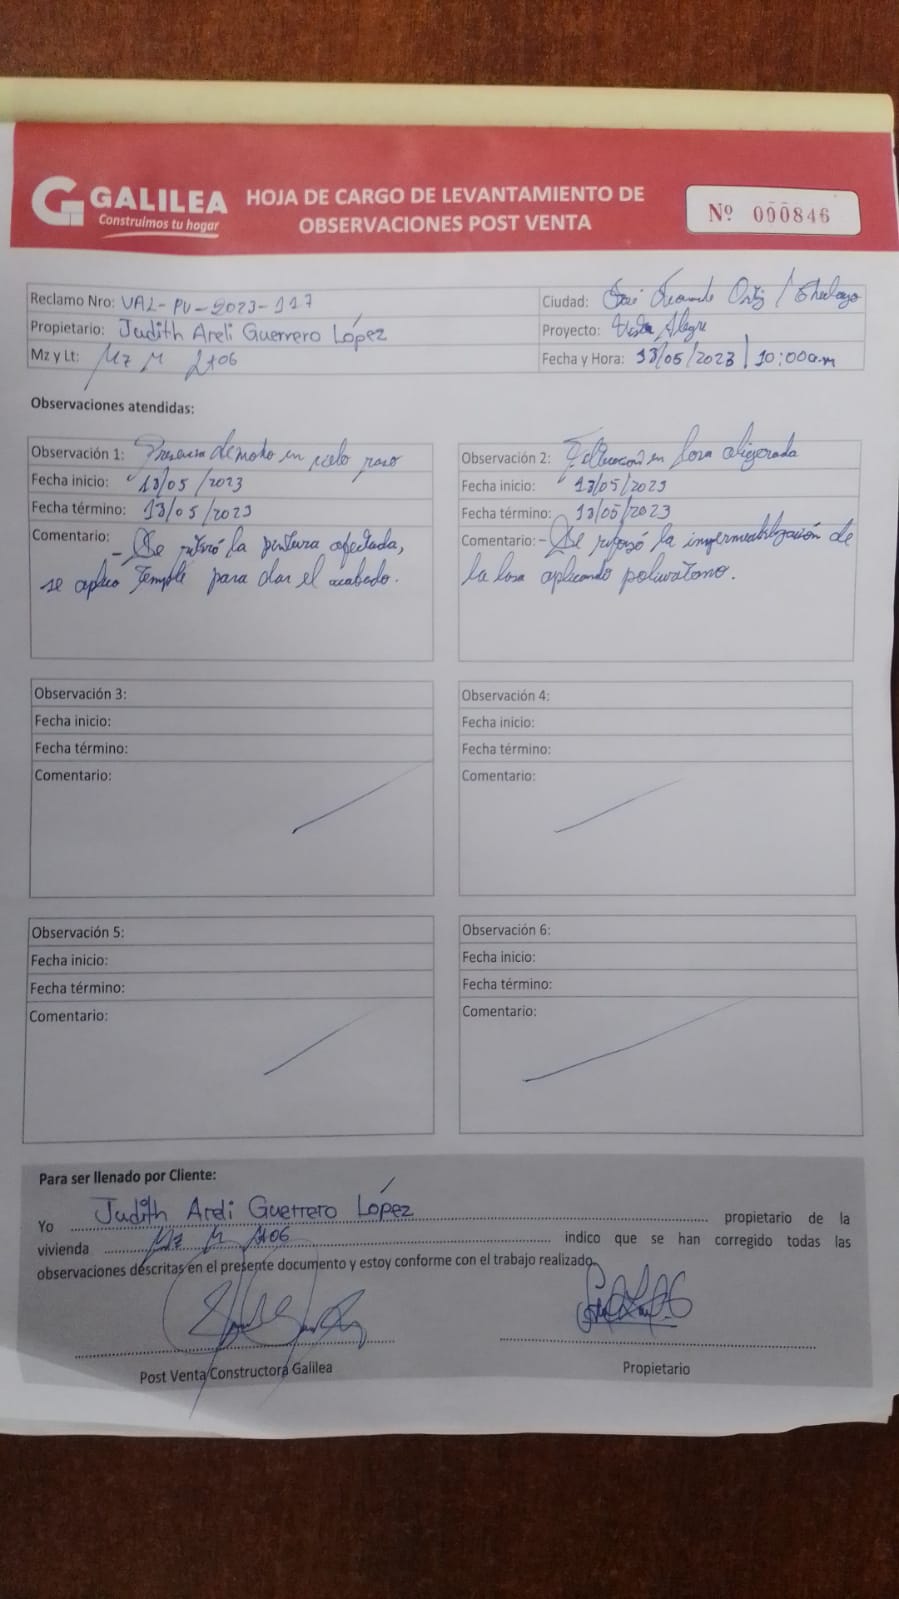 GALILEA
Construimos tu hogar
HOJA DE CARGO DE LEVANTAMIENTO DE
OBSERVACIONES POST VENTA
Nº 000846
Reclamo Nro: VAL-PV-2023-117
Ciudad: José Leonardo Ortiz / Chiclayo
Propietario: Judith Areli Guerrero López
Proyecto: Vista Alegre
Mz y Lt: Mz M Lt06
Fecha y Hora: 13/05/2023 | 10:00a.m
Observaciones atendidas:
Observación 1: Presencia de moho en cielo raso
Fecha inicio: 13/05/2023
Fecha término: 13/05/2023
Comentario: - Se retiró la pintura afectada,
se aplico temple para dar el acabado.
Observación 2: en losa aligerada
Fecha inicio: 13/05/2023
Fecha término: 13/05/2023
Comentario: - Se reforzó la impermeabilización de
la losa aplicando poliuretano.
Observación 3:
Fecha inicio:
Fecha término:
Comentario:
Observación 4:
Fecha inicio:
Fecha término:
Comentario:
Observación 5:
Fecha inicio:
Fecha término:
Comentario:
Observación 6:
Fecha inicio:
Fecha término:
Comentario:
Para ser llenado por Cliente:
Yo Judith Areli Guerrero López propietario de la
vivienda Mz M Lt06 indico que se han corregido todas las
observaciones descritas en el presente documento y estoy conforme con el trabajo realizado.
Post Venta Constructora Galilea
Propietario